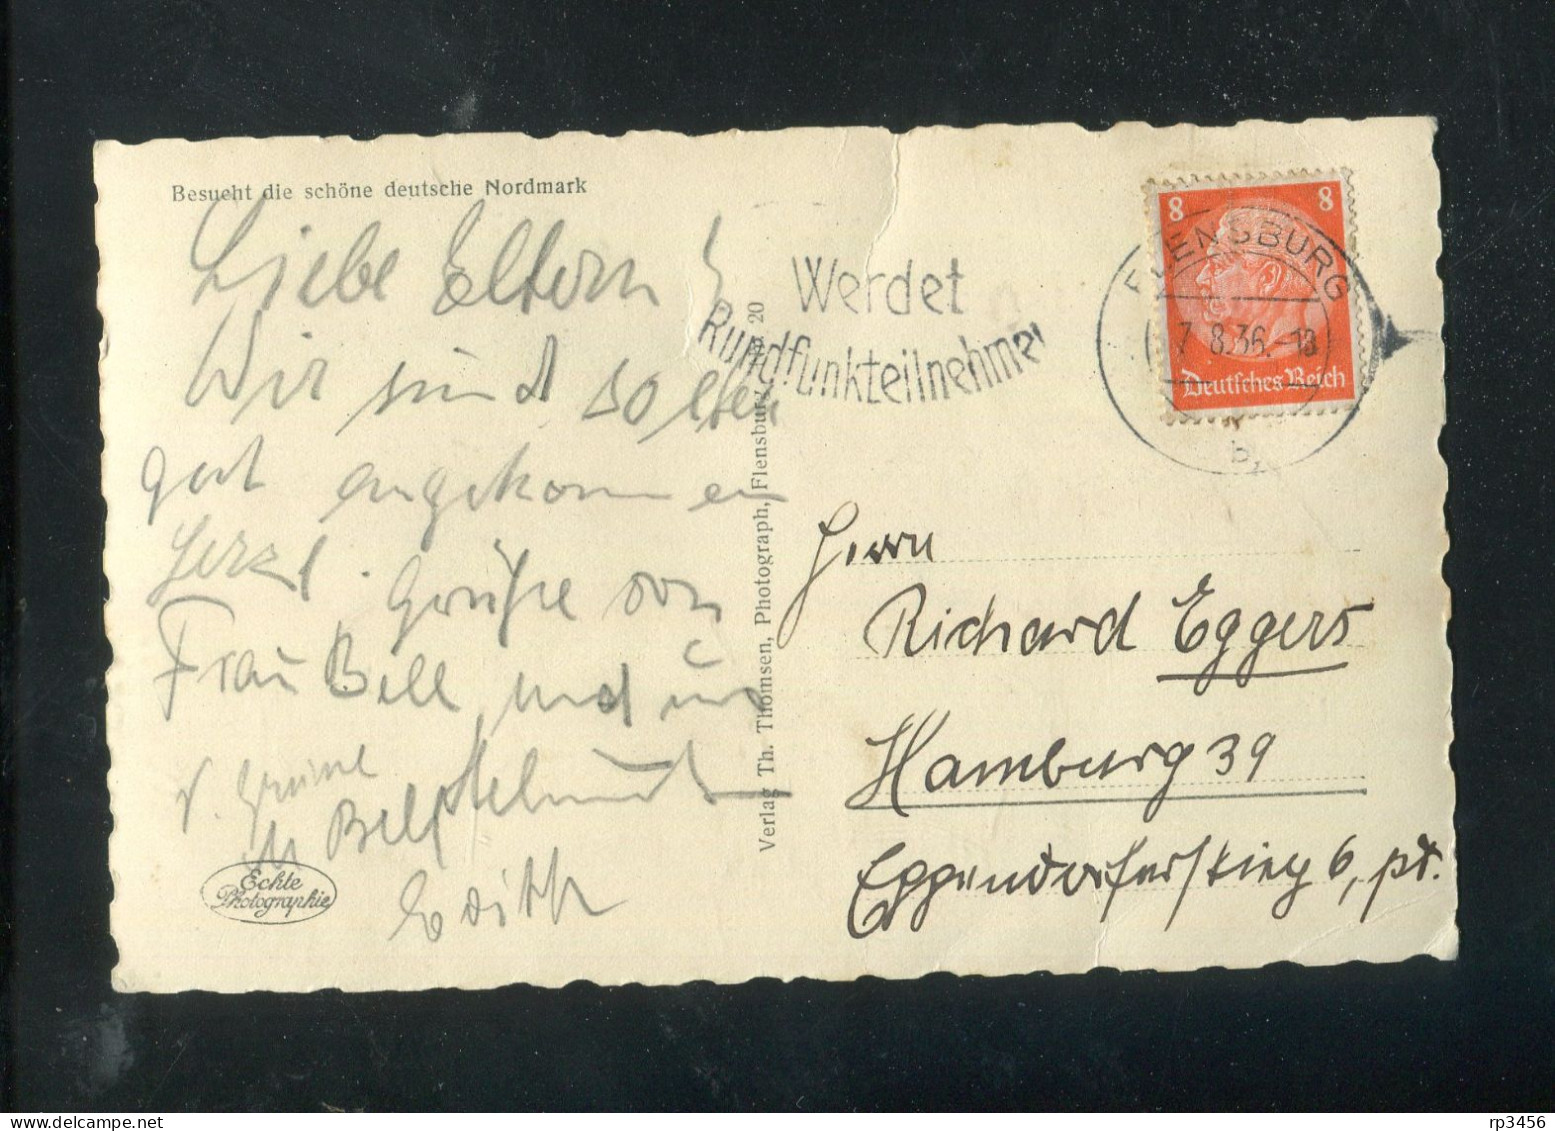 Besucht die schöne deutsche Nordmark
Liebe Eltern!
Wir sind soeben
gut angekommen
Herzl. Grüße von
Frau Bell und uns
Helmut
Bell
Edith
Echte
Photographie
Verlag Th. Thomsen, Photograph, Flensburg, Nr. 20
Werdet
Rundfunkteilnehmer
FLENSBURG
7.8.36.-18
b
8 8
Deutsches Reich
Herrn
Richard Eggers
Hamburg 39
Eppendorferstieg 6, pt.
rp3456